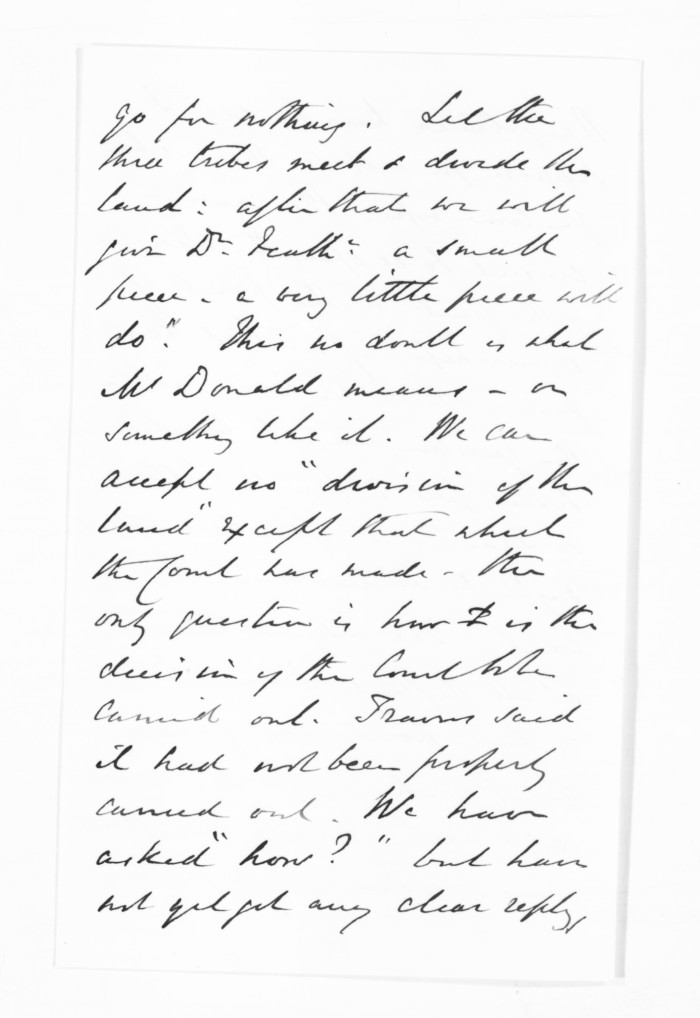 go for nothing. Let the
three tribes meet & divide the
land: after that we will
give Dr. Feathn: a small
piece - a very little piece will
do". This no doubt is what
McDonald means - or
something like it. We can
accept no "division of the
land" except that which
the Court has made - the
only question is how is the
decision of the Court to be
carried out. Travers said
it had not been properly
carried out. We have
asked "how?" but have
not yet got any clear reply,